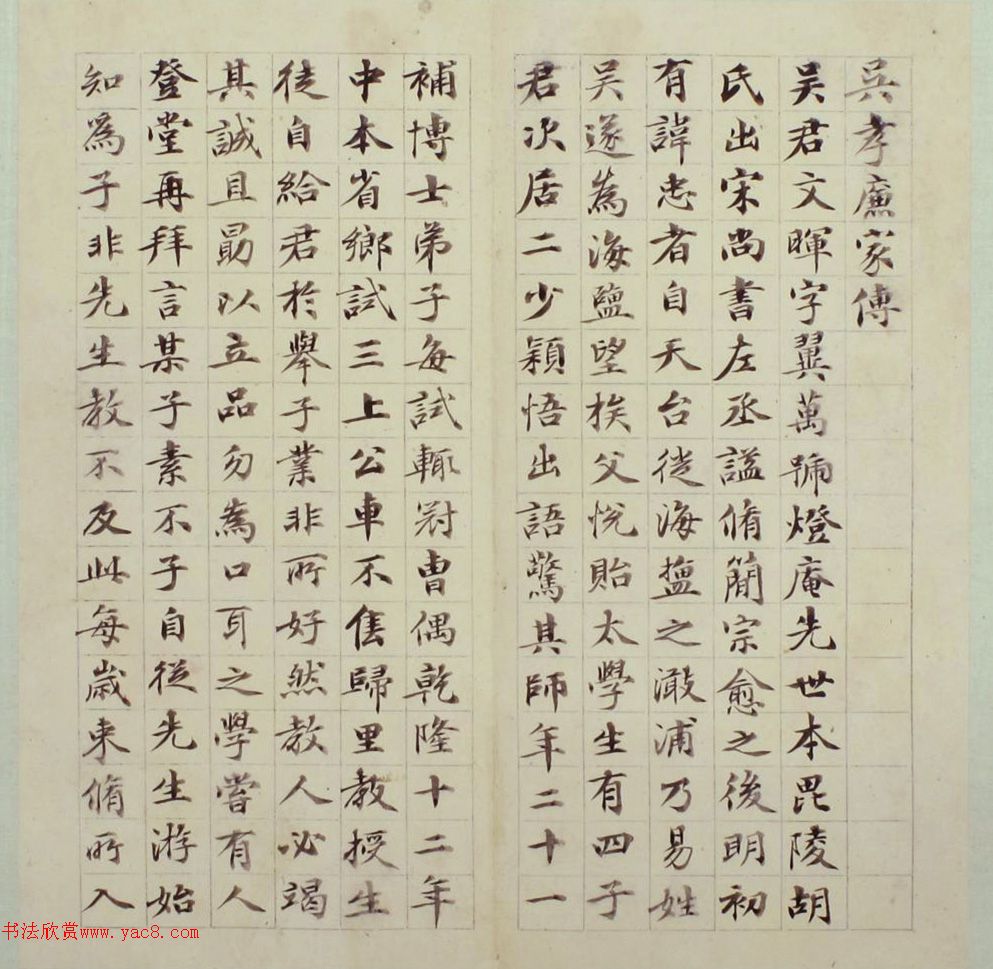 吳孝廉家傳
吴君文暉字翼萬號燈庵先世本毘陵胡
氏出宋尚書左丞謚脩簡宗愈之後明初
有諱忠者自天台徙海鹽之澉浦乃易姓
吴遂為海鹽望族父悅貽太學生有四子
君次居二少穎悟出語驚其師年二十一
補博士弟子每試輒冠曹偶乾隆十二年
中本省鄉試三上公車不售歸里教授生
徒自給君於舉子業非所好然教人必竭
其誠且勗以立品勿為口耳之學嘗有人
登堂再拜言某子素不子自從先生游始
知為子非先生教不及此每歲束脩所入
书法欣赏www.yac8.com